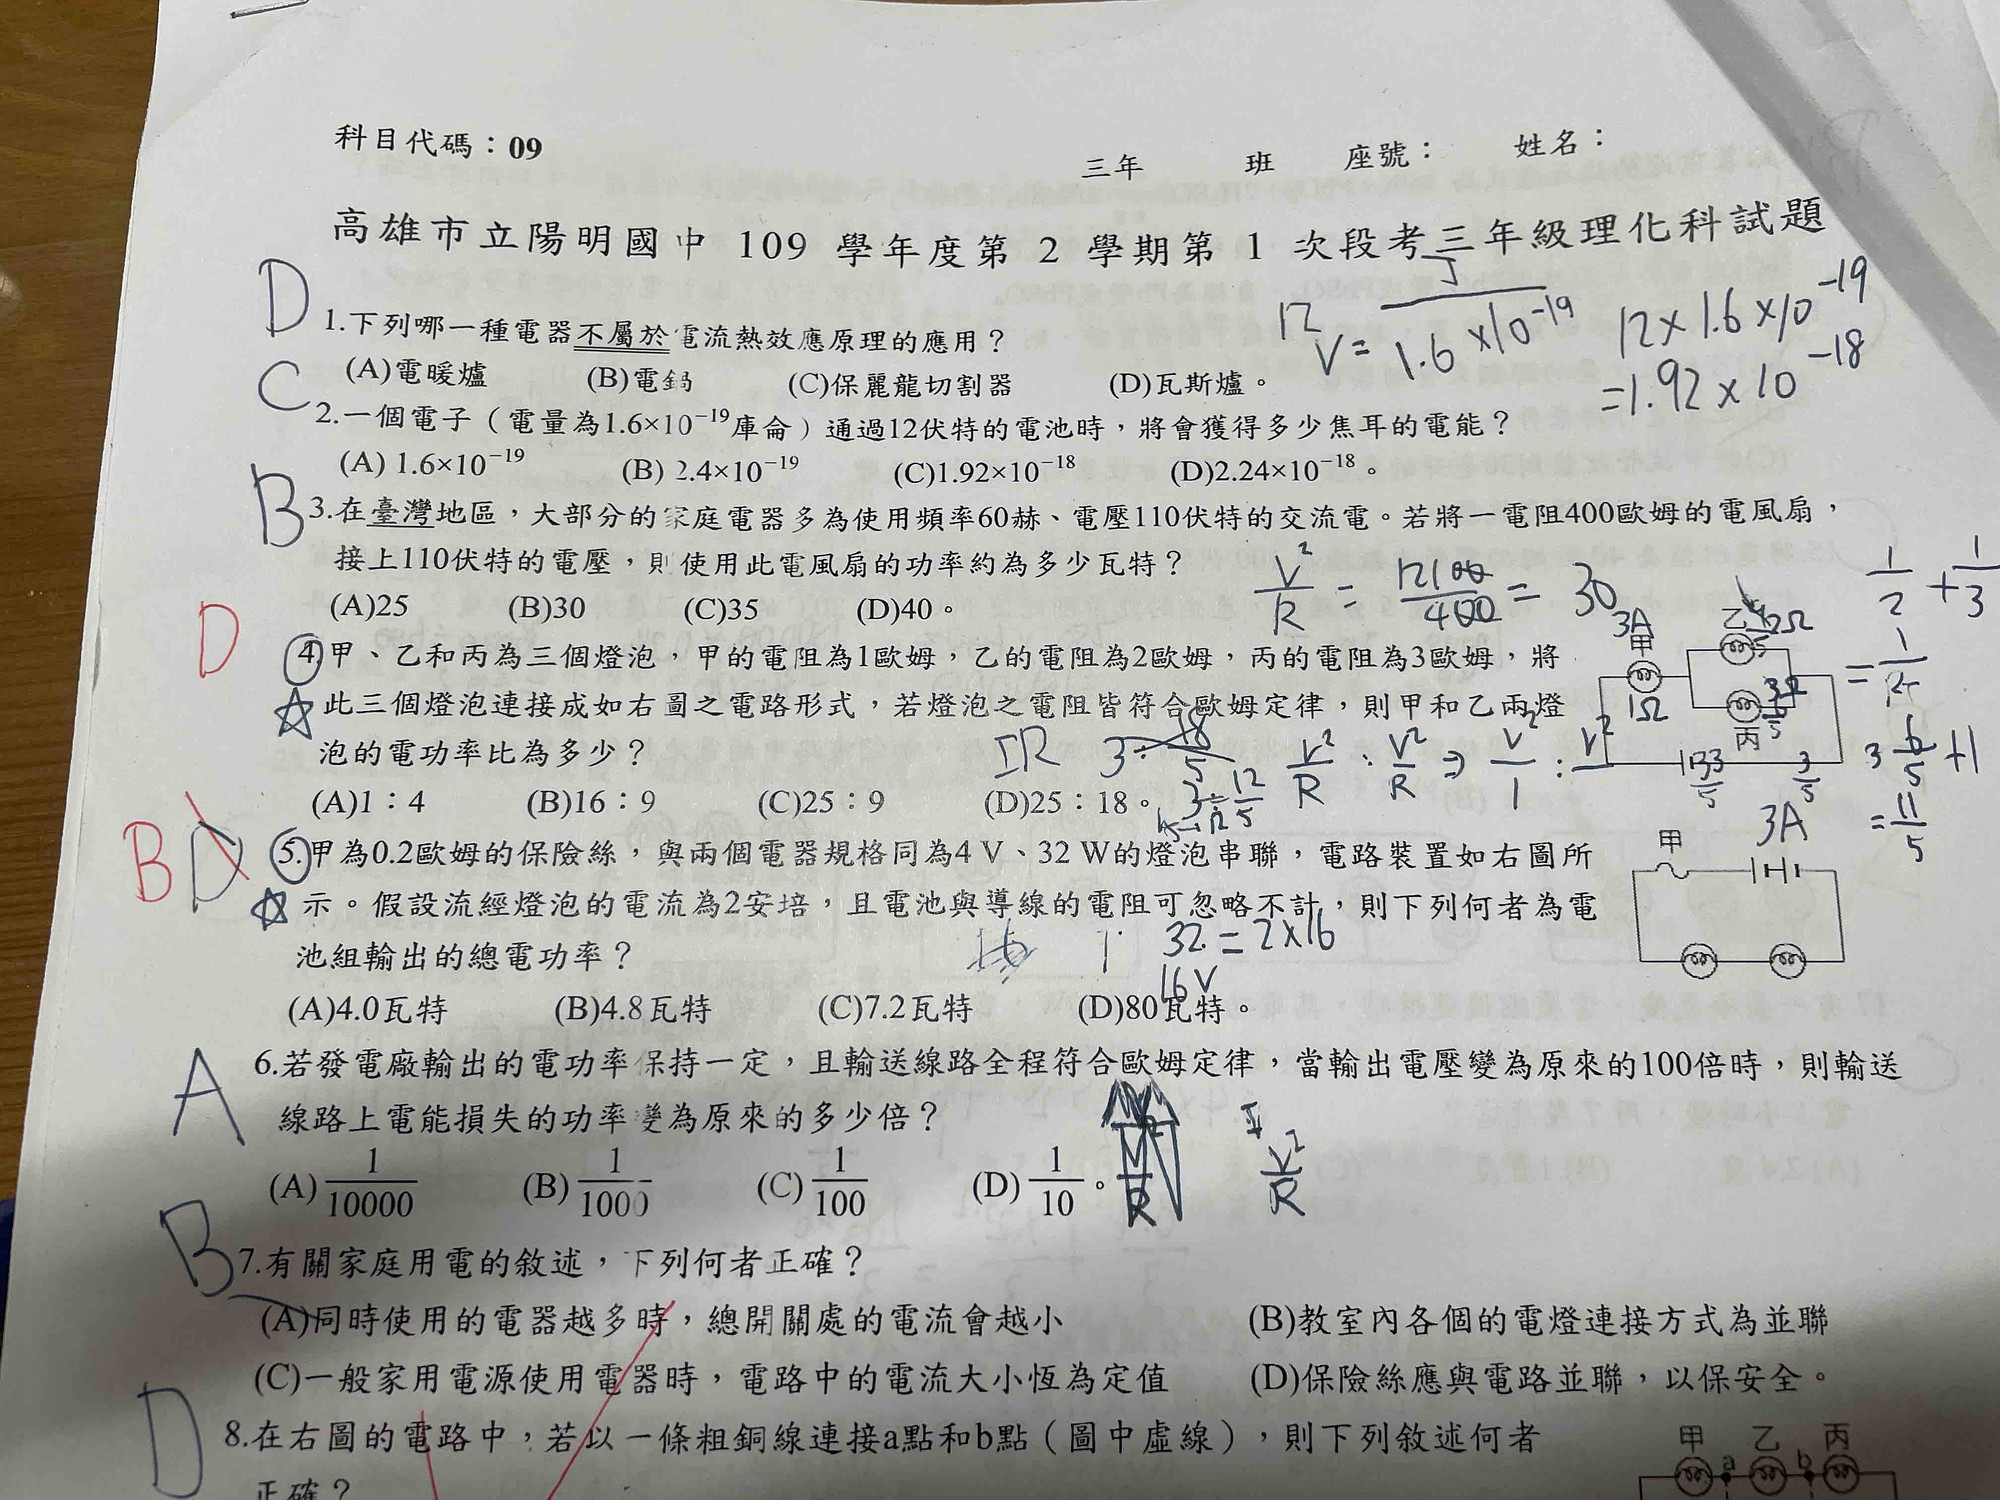 科目代碼：09
三年 班 座號： 姓名：
高雄市立陽明國中 109 學年度第 2 學期第 1 次段考三年級理化科試題
D
1.下列哪一種電器不屬於電流熱效應原理的應用？
(A)電暖爐 (B)電鍋 (C)保麗龍切割器 (D)瓦斯爐。
12 V = J / 1.6×10⁻¹⁹
12×1.6×10⁻¹⁹
=1.92×10⁻¹⁸
C
2.一個電子（電量為1.6×10⁻¹⁹庫侖）通過12伏特的電池時，將會獲得多少焦耳的電能？
(A) 1.6×10⁻¹⁹ (B) 2.4×10⁻¹⁹ (C)1.92×10⁻¹⁸ (D)2.24×10⁻¹⁸。
B
3.在臺灣地區，大部分的家庭電器多為使用頻率60赫、電壓110伏特的交流電。若將一電阻400歐姆的電風扇，
接上110伏特的電壓，則使用此電風扇的功率約為多少瓦特？
(A)25 (B)30 (C)35 (D)40。
V²/R = 12100/400 = 30
D
4.甲、乙和丙為三個燈泡，甲的電阻為1歐姆，乙的電阻為2歐姆，丙的電阻為3歐姆，將
此三個燈泡連接成如右圖之電路形式，若燈泡之電阻皆符合歐姆定律，則甲和乙兩燈
泡的電功率比為多少？
(A)1：4 (B)16：9 (C)25：9 (D)25：18。
IR
V²/R : V²/R ⇒ V²/1 : V²
3A
甲
1Ω
乙
2Ω
丙
3A
1/2 + 1/3
6/5 +1
= 11/5
B D
5.甲為0.2歐姆的保險絲，與兩個電器規格同為4 V、32 W的燈泡串聯，電路裝置如右圖所
示。假設流經燈泡的電流為2安培，且電池與導線的電阻可忽略不計，則下列何者為電
池組輸出的總電功率？
(A)4.0瓦特 (B)4.8瓦特 (C)7.2瓦特 (D)80瓦特。
32 = 2×16
16V
甲
A
6.若發電廠輸出的電功率保持一定，且輸送線路全程符合歐姆定律，當輸出電壓變為原來的100倍時，則輸送
線路上電能損失的功率變為原來的多少倍？
(A) 1/10000 (B) 1/1000 (C) 1/100 (D) 1/10。
V²/R
B
7.有關家庭用電的敘述，下列何者正確？
(A)同時使用的電器越多時，總開關處的電流會越小 (B)教室內各個的電燈連接方式為並聯
(C)一般家用電源使用電器時，電路中的電流大小恆為定值 (D)保險絲應與電路並聯，以保安全。
D
8.在右圖的電路中，若以一條粗銅線連接a點和b點（圖中虛線），則下列敘述何者
正確？
甲 乙 丙
a b